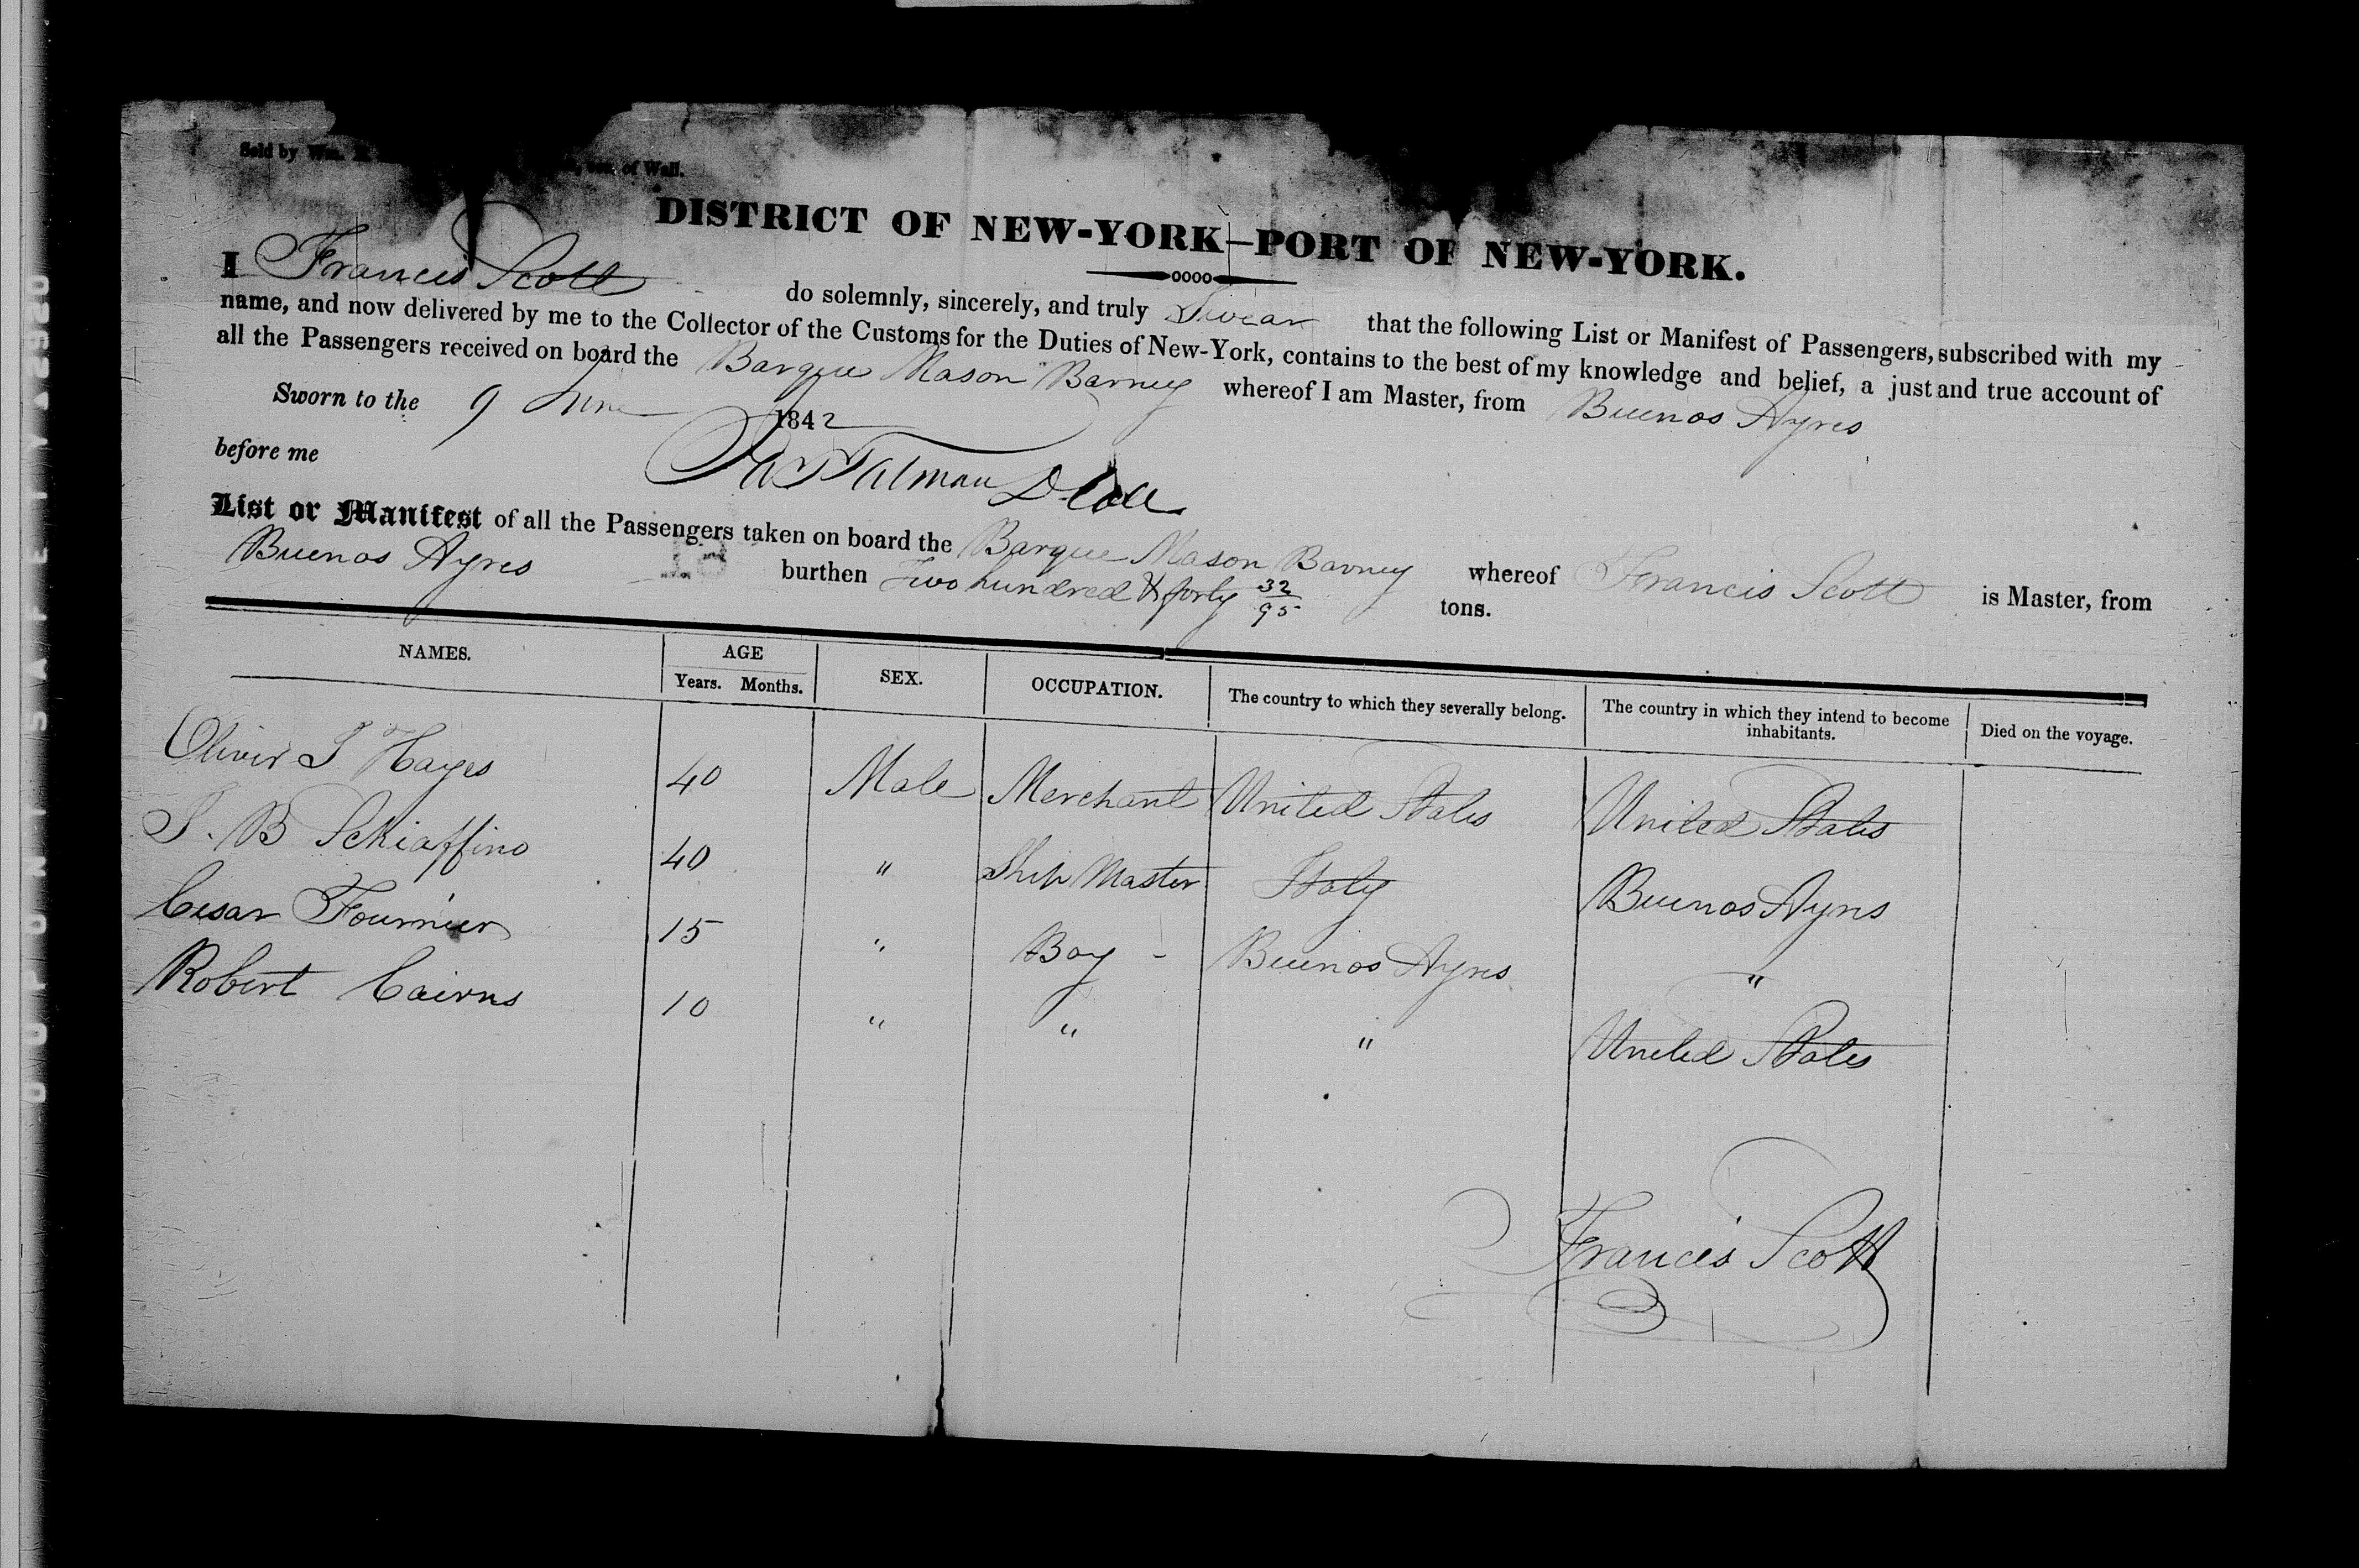 Sold by Wm. of Wall.
DISTRICT OF NEW-YORK—PORT OF NEW-YORK.
I Francis Scott do solemnly, sincerely, and truly Swear that the following List or Manifest of Passengers, subscribed with my
name, and now delivered by me to the Collector of the Customs for the Duties of New-York, contains to the best of my knowledge and belief, a just and true account of
all the Passengers received on board the Barque Mason Barney whereof I am Master, from Buenos Ayres
Sworn to the 9 June 1842
before me Talman D Coll
List or Manifest of all the Passengers taken on board the Barque Mason Barney whereof Francis Scott is Master, from
Buenos Ayres burthen Two hundred & forty 32/95 tons.
NAMES. AGE SEX. OCCUPATION. The country to which they severally belong. The country in which they intend to become inhabitants. Died on the voyage.
Years. Months.
Oliver J Hayes 40 Male Merchant United States United States
J. B Schiaffino 40 " Ship Master Italy Buenos Ayres
Cesar Fournier 15 " Boy - Buenos Ayres "
Robert Cairns 10 " " " United States
Francis Scott